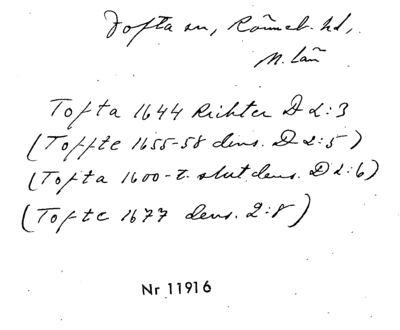 Tofta sn, Rönneb. hd,
M. län
Tofta 1644 Richter D 2:3
(Toffte 1655-58 dens. D 2:5)
(Tofta 1600-t. slut dens. D 2:6)
(Tofte 1677 dens. 2:8)
Nr 11916